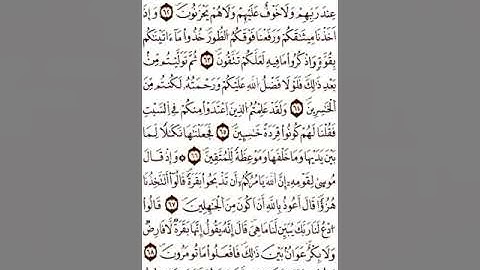 عِندَ رَبِّهِمْ وَلَا خَوْفٌ عَلَيْهِمْ وَلَا هُمْ يَحْزَنُونَ ٦٢ وَإِذْ
أَخَذْنَا مِيثَٰقَكُمْ وَرَفَعْنَا فَوْقَكُمُ الطُّورَ خُذُوا مَا ءَاتَيْنَٰكُم
بِقُوَّةٍ وَاذْكُرُوا مَا فِيهِ لَعَلَّكُمْ تَتَّقُونَ ٦٣ ثُمَّ تَوَلَّيْتُم مِّنْ
بَعْدِ ذَٰلِكَ فَلَوْلَا فَضْلُ اللَّهِ عَلَيْكُمْ وَرَحْمَتُهُ لَكُنتُم مِّنَ
الْخَٰسِرِينَ ٦٤ وَلَقَدْ عَلِمْتُمُ الَّذِينَ اعْتَدَوْا مِنكُمْ فِي السَّبْتِ
فَقُلْنَا لَهُمْ كُونُوا قِرَدَةً خَٰسِـِٔينَ ٦٥ فَجَعَلْنَٰهَا نَكَٰلًا لِّمَا
بَيْنَ يَدَيْهَا وَمَا خَلْفَهَا وَمَوْعِظَةً لِّلْمُتَّقِينَ ٦٦ وَإِذْ قَالَ
مُوسَىٰ لِقَوْمِهِ إِنَّ اللَّهَ يَامُرُكُمْ أَن تَذْبَحُوا بَقَرَةً قَالُوا أَتَتَّخِذُنَا
هُزُؤًا قَالَ أَعُوذُ بِاللَّهِ أَنْ أَكُونَ مِنَ الْجَٰهِلِينَ ٦٧ قَالُوا
ادْعُ لَنَا رَبَّكَ يُبَيِّن لَّنَا مَا هِيَ قَالَ إِنَّهُ يَقُولُ إِنَّهَا بَقَرَةٌ لَّا فَارِضٌ
وَلَا بِكْرٌ عَوَانٌ بَيْنَ ذَٰلِكَ فَافْعَلُوا مَا تُومَرُونَ ٦٨